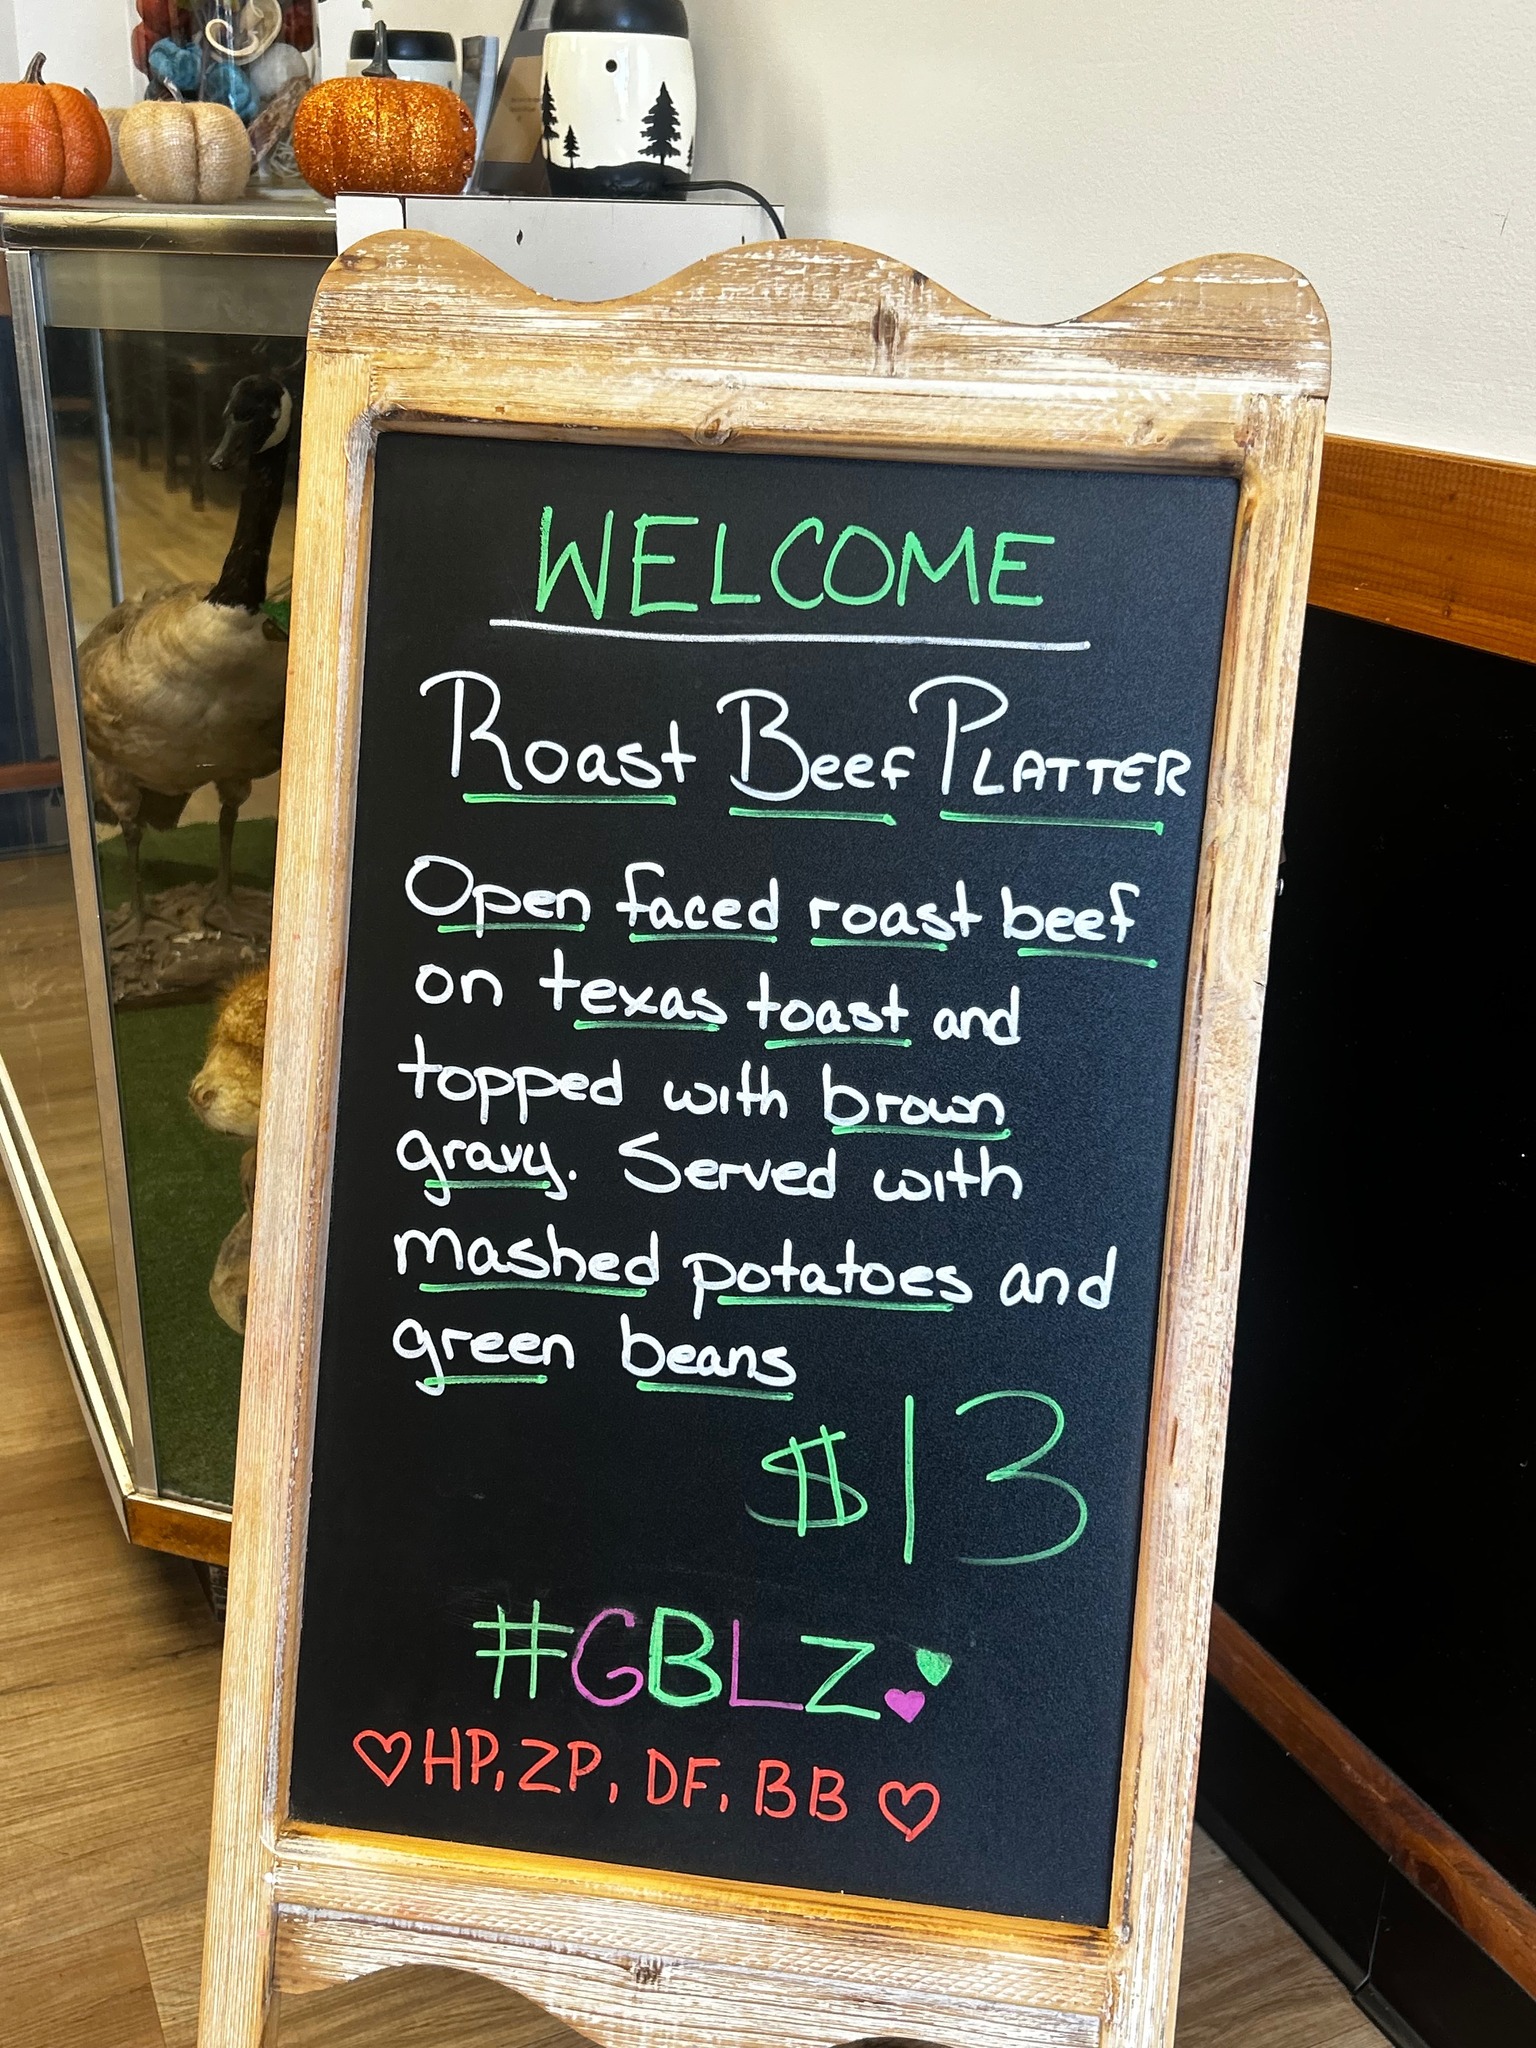 WELCOME
Roast Beef PLATTER
Open faced roast beef
on texas toast and
topped with brown
gravy. Served with
mashed potatoes and
green beans
$13
#GBLZ
♡HP, ZP, DF, BB♡